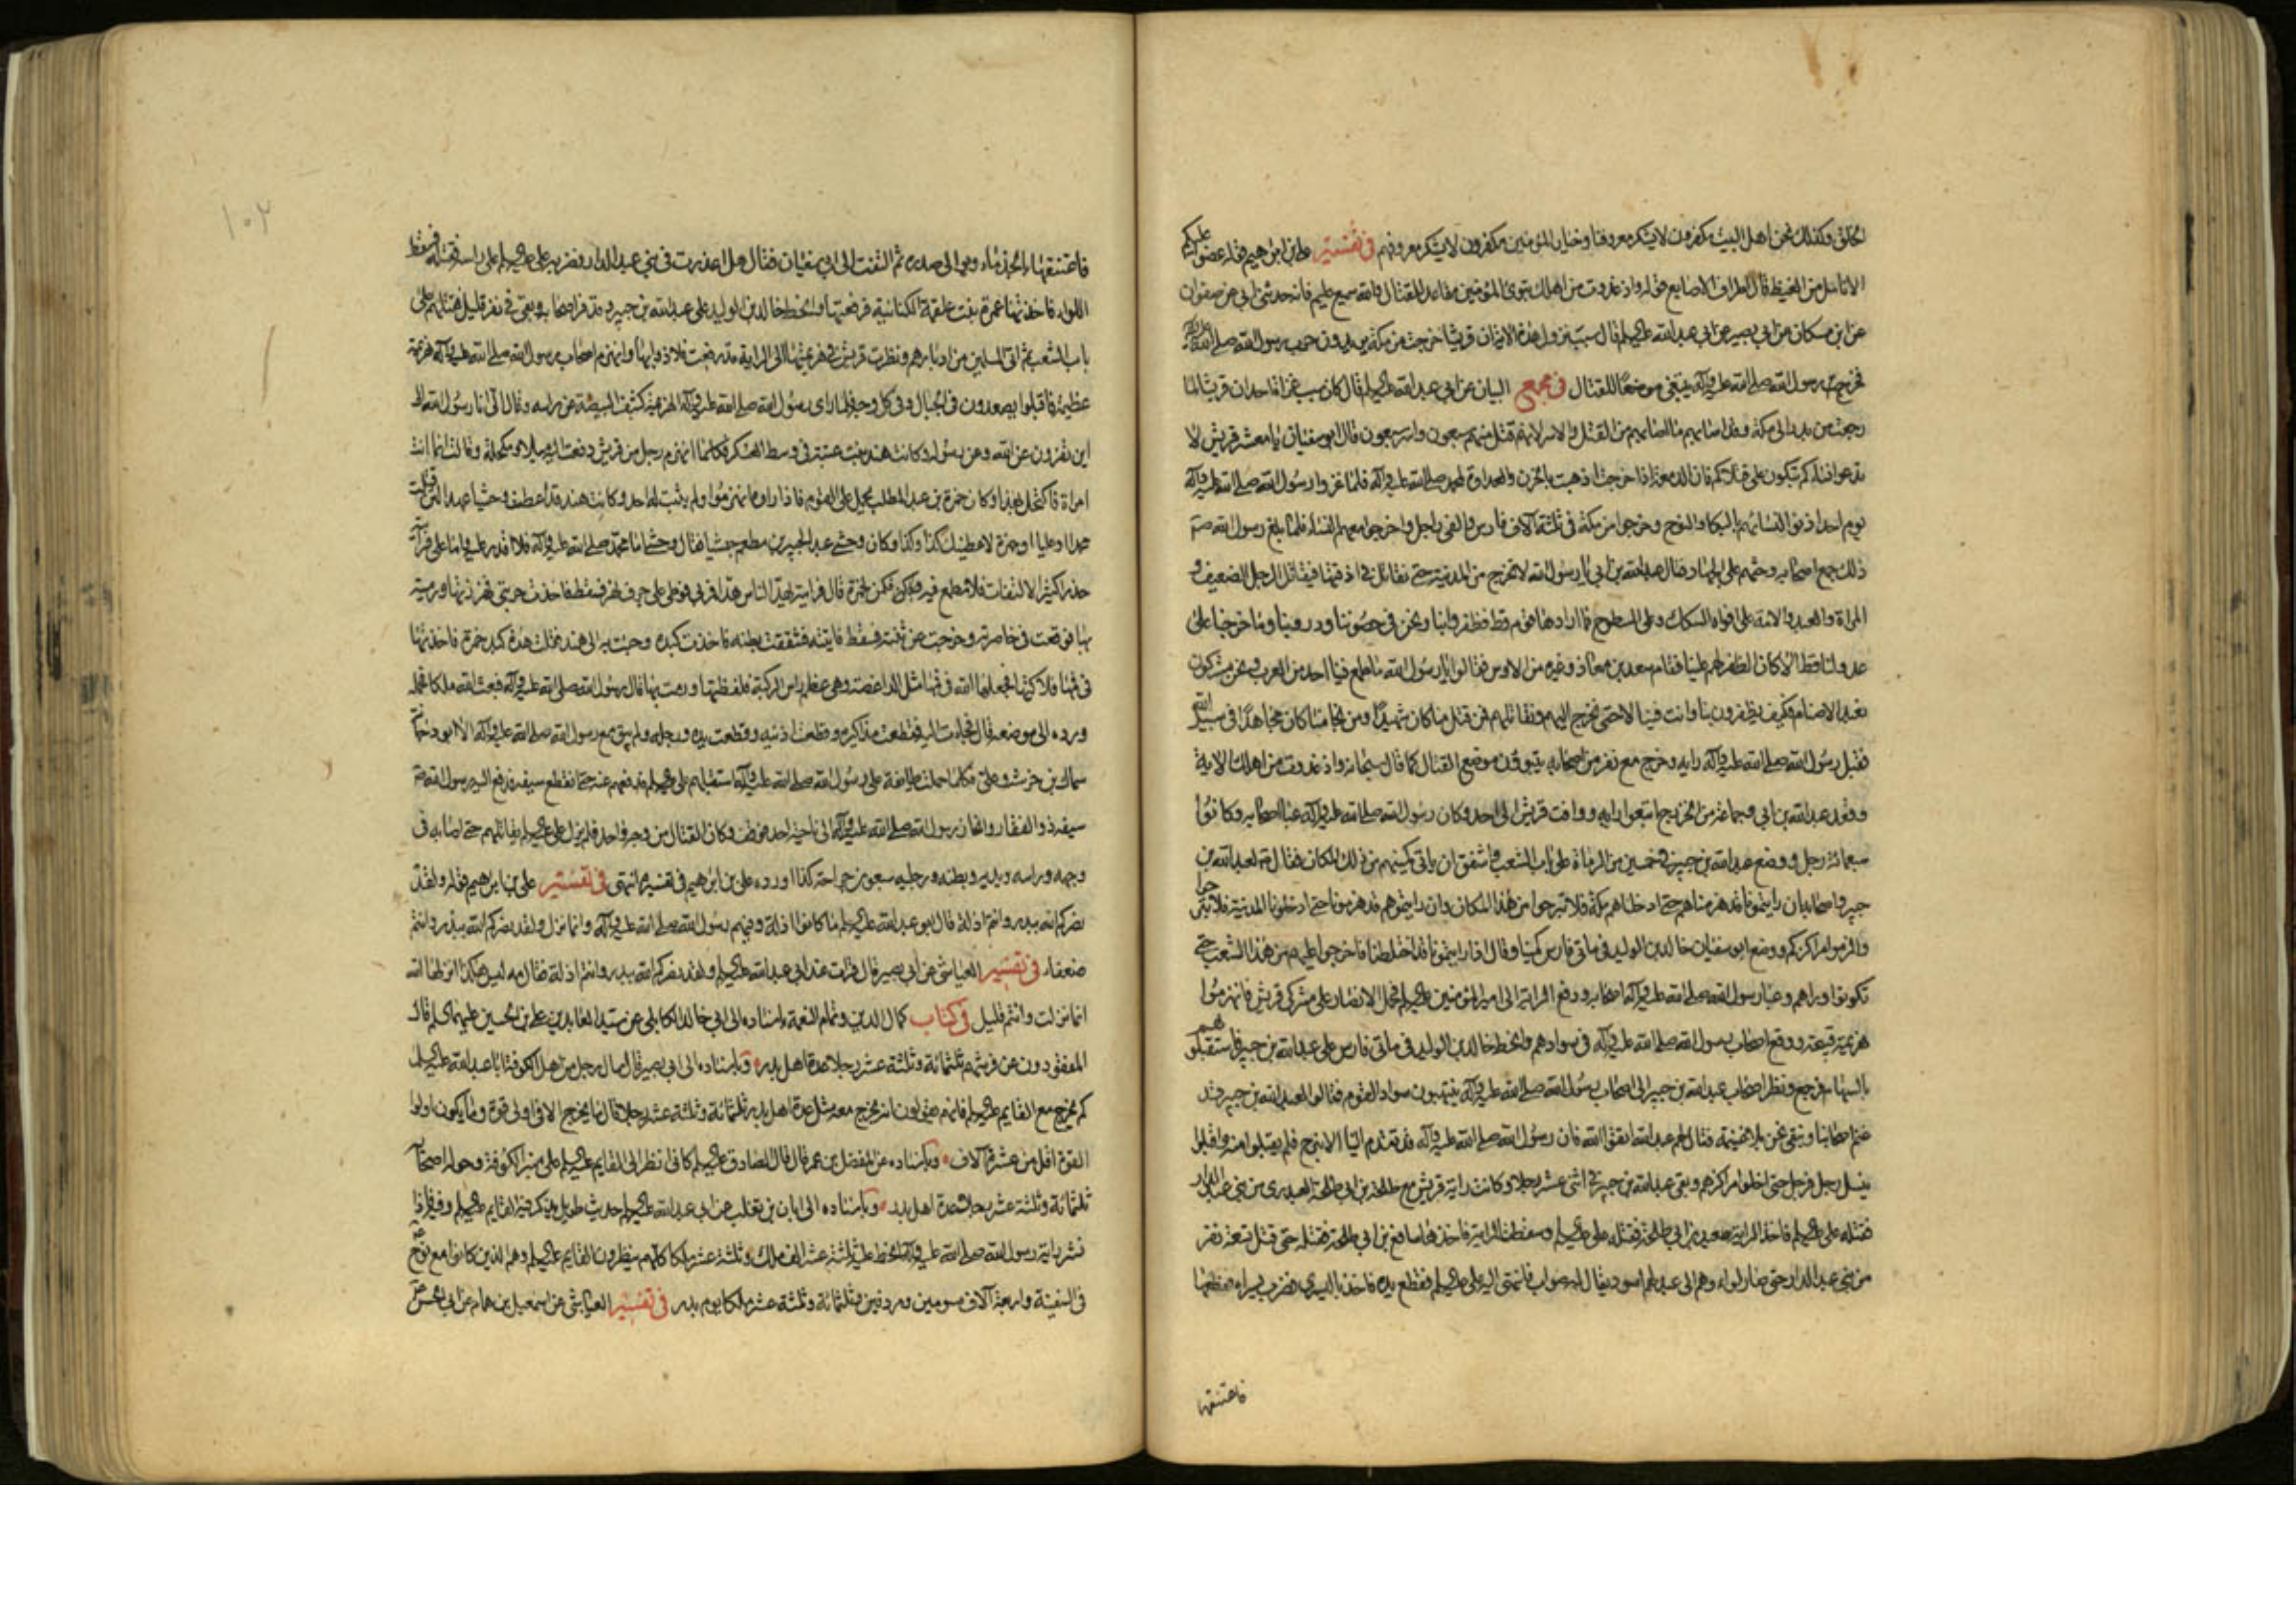 الخلق وكذلك نحن اهل البيت مكفرون لا يشكر معروفنا وخيار المؤمنين مكفرون لا يشكر معروفهم في تفسير علي بن ابرهيم قوله عضوا عليكم
الانامل من الغيظ قال اطراف الاصابع قوله واذ غدوت من اهلك تبوئ المؤمنين مقاعد للقتال والله سميع عليم فانه حدثني ابي عن صفوان
عن ابن مسكان عن ابي بصير عن ابي عبد الله عليه السلم قال سبب نزول هذه الاية ان قريشا خرجت من مكة يريدون حرب رسول الله صلى الله عليه وآله
فخرج رسول الله صلى الله عليه وآله يبتغي موضعا للقتال في مجمع البيان عن ابي عبد الله عليه السلم قال كان سبب غزاة احد ان قريشا لما
رجعت من بدر الى مكة وقد اصابهم ما اصابهم من القتل والاسر لانه قتل منهم سبعون واسر سبعون قال ابو سفيان يا معشر قريش لا
تدعوا نساءكم تبكون على قتلاكم فان الدمعة اذا خرجت اذهبت بالحزن والعداوة لمحمد صلى الله عليه وآله فلما غزوا رسول الله صلى الله عليه وآله
يوم احد اذنوا لنسائهم بالبكاء والنوح وخرجوا من مكة في ثلثة آلاف فارس والفي راجل واخرجوا معهم النساء فلما بلغ رسول الله صم
ذلك جمع اصحابه وحثهم على الجهاد فقال عبد الله بن ابي يا رسول الله لا تخرج من المدينة حتى نقاتل في ازقتها فيقاتل الرجل الضعيف و
المراة والعبد والامة على افواه السكك وعلى السطوح فما ارادها قوم قط فظفروا بنا ونحن في حصوننا ودروبنا وما خرجنا على
عدو لنا قط الا كان الظفر لهم علينا فقام سعد بن معاذ وغيره من الاوس فقالوا يا رسول الله ما طمع فينا احد من العرب ونحن مشركون
نعبد الاصنام فكيف يظفرون بنا وانت فينا لا حتى نخرج اليهم ونقاتلهم فمن قتل منا كان شهيدا ومن نجا منا كان مجاهدا في سبيل الله
فقبل رسول الله صلى الله عليه وآله رايه وخرج مع نفر من اصحابه يتبوؤن موضع القتال كما قال سبحانه واذ غدوت من اهلك الاية
وقعد عبد الله بن ابي وجماعة من الخزرج اتبعوا رايه ووافت قريش الى احد وكان رسول الله صلى الله عليه وآله عبا اصحابه وكانوا
سبعمائة رجل ووضع عبد الله بن جبير في خمسين من الرماة على باب الشعب واشفق ان ياتي كمينهم من ذلك المكان فقال لعبد الله بن
جبير واصحابه ان رايتمونا قد هزمناهم حتى ادخلناهم مكة فلا تبرحوا من هذا المكان وان رايتموهم قد هزمونا حتى ادخلونا المدينة فلا تبرحوا
والزموا مراكزكم ووضع ابو سفيان خالد بن الوليد في مائتي فارس كمينا وقال اذا رايتمونا قد اختلطنا فاخرجوا عليهم من هذا الشعب حتى
تكونوا وراهم وعبا رسول الله صلى الله عليه وآله اصحابه ودفع الراية الى امير المؤمنين عليه السلم فحمل الانصار على مشركي قريش فانهزموا
هزيمة قبيحة ووقع اصحاب رسول الله صلى الله عليه وآله في سوادهم وانحط خالد بن الوليد في مائتي فارس على عبد الله بن جبير فاستقبلوهم
بالسهام فرجع ونظر اصحاب عبد الله بن جبير الى اصحاب رسول الله صلى الله عليه وآله ينتهبون سواد القوم فقالوا لعبد الله بن جبير وقد
غنم اصحابنا ونبقى نحن بلا غنيمة فقال لهم عبد الله اتقوا الله فان رسول الله صلى الله عليه وآله قد تقدم الينا الا نبرح فلم يقبلوا منه واقبلوا
ينسل رجل فرجل حتى اخلوا مراكزهم وبقي عبد الله بن جبير في اثني عشر رجلا وكانت راية قريش مع طلحة بن ابي طلحة العبدري من بني عبد الدار
فقتله علي عليه السلم فاخذ الراية ابو سعيد بن ابي طلحة فقتله علي عليه السلم وسقطت الراية فاخذها مسافع بن ابي طلحة فقتله حتى قتل تسعة نفر
من بني عبد الدار حتى صار لواوه وهم الى عبد لهم اسود يقال له صواب فانتهى اليه علي عليه السلم فقطع يده فاخذ باليسرى فضرب يسراه فقطعها
فاعتنقها
١٠٢
فاعتنقها بالجذماوين الى صدره ثم التفت الى ابي سفيان فقال هل اعذرت في بني عبد الدار فضربه علي عليه السلم على راسه فقتله فسقط
اللواء فاخذتها عمرة بنت علقمة الكنانية فرفعتها وانحط خالد بن الوليد على عبد الله بن جبير وقد فر اصحابه وبقي في نفر قليل فقتلهم على
باب الشعب ثم اتى المسلمين من ادبارهم ونظرت قريش في هزيمتها الى الراية قد رفعت فلاذوا بها وانهزم اصحاب رسول الله صلى الله عليه وآله هزيمة
عظيمة فاقبلوا يصعدون في الجبال وفي كل وجه فلما راى رسول الله صلى الله عليه وآله الهزيمة كشف البيضة عن راسه وقال الي انا رسول الله الى
اين تفرون عن الله وعن رسوله وكانت هند بنت عتبة في وسط العسكر فكلما انهزم رجل من قريش دفعت اليه ميلا ومكحلة وقالت انما انت
امراة فاكتحل بهذا وكان حمزة بن عبد المطلب يحمل على القوم فاذا راوه انهزموا ولم يثبت له احد وكانت هند قد اعطت وحشيا عهدا لئن قتلت
محمدا او عليا او حمزة لاعطينك كذا وكذا وكان وحشي عبدا لجبير بن مطعم حبشيا فقال وحشي اما محمد صلى الله عليه وآله فلا اقدر عليه واما علي فرايته
حذرا كثير الالتفات فلا مطمع فيه فكمن لحمزة قال فرايته يهد الناس هدا فمر بي فوطئ على جرف نهر فسقط فاخذت حربتي فهززتها ورميته
بها فوقعت في خاصرته وخرجت عن ثنته فسقط فاتيته فشققت بطنه فاخذت كبده وجئت به الى هند فقلت هذه كبد حمزة فاخذتها
في فمها فلاكتها فجعلها الله في فمها مثل الداغصة وهي عظم راس الركبة فلفظتها ورمت بها قال رسول الله صلى الله عليه وآله فبعث الله ملكا فحمله
ورده الى موضعه قال فجاءت اليه فقطعت مذاكيره وقطعت اذنيه وقطعت يده ورجله ولم يبق مع رسول الله صلى الله عليه وآله الا ابو دجانة
سماك بن خرشة وعلي فكلما حملت طايفة على رسول الله صلى الله عليه وآله استقبلهم علي عليه السلم فدفعهم عنه حتى انقطع سيفه فدفع اليه رسول الله صم
سيفه ذو الفقار وانحاز رسول الله صلى الله عليه وآله الى ناحية احد فوقف وكان القتال من وجه واحد فلم يزل علي عليه السلم يقاتلهم حتى اصابه في
وجهه وراسه ويديه وبطنه ورجليه سبعون جراحة كذا اورده علي بن ابرهيم في تفسيره انتهى في تفسير علي بن ابرهيم قوله ولقد
نصركم الله ببدر وانتم اذلة قال ابو عبد الله عليه السلم ما كانوا اذلة وفيهم رسول الله صلى الله عليه وآله وانما نزل ولقد نصركم الله ببدر وانتم
ضعفاء في تفسير العياشي عن ابي بصير قال قرات عند ابي عبد الله عليه السلم ولقد نصركم الله ببدر وانتم اذلة فقال مه ليس هكذا انزلها الله
انما نزلت وانتم قليل في كتاب كمال الدين وتمام النعمة باسناده الى ابي خالد الكابلي عن سيد العابدين علي بن الحسين عليهما السلم قال
المفقودون عن فرشهم ثلثمائة وثلثة عشر رجلا عدة اهل بدر وباسناده الى ابي بصير قال سال رجل من اهل الكوفة ابا عبد الله عليه السلم
كم يخرج مع القايم عليه السلم فانهم يقولون انه يخرج معه مثل عدة اهل بدر ثلثمائة وثلثة عشر رجلا قال ما يخرج الا في اولى قوة وما يكون اولوا
القوة اقل من عشرة آلاف وباسناده عن المفضل بن عمر قال قال الصادق عليه السلم كاني انظر الى القايم عليه السلم على منبر الكوفة وحوله اصحابه
ثلثمائة وثلثة عشر رجلا عدة اهل بدر وباسناده الى ابان بن تغلب عن ابي عبد الله عليه السلم حديث طويل يذكر فيه القايم عليه السلم وفيه فاذا
نشر راية رسول الله صلى الله عليه وآله انحط عليه ثلثة عشر الف ملك وثلثة عشر ملكا كلهم ينظرون القايم عليه السلم وهم الذين كانوا مع نوح
في السفينة واربعة آلاف مسومين ومردفين وثلثمائة وثلثة عشر ملكا يوم بدر في تفسير العياشي عن اسمعيل بن همام عن ابي الحسن